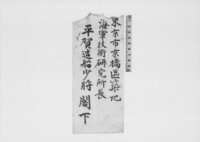 東京市京橋區築地
海軍技術研究所長
平賀造船少将閣下